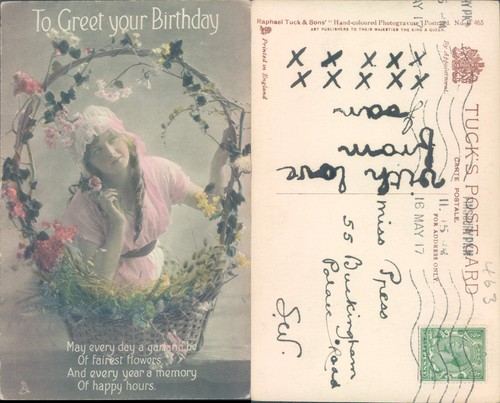 To Greet your Birthday
May every day a garland be
Of fairest flowers
And every year a memory
Of happy hours.
Raphael Tuck & Sons' "Hand-coloured Photogravure" Postcard. No.
ART PUBLISHERS TO THEIR MAJESTIES THE KING & QUEEN.
Printed in England
By Appointment.
TUCK'S POST CARD
CARTE POSTALE.
FOR ADDRESS ONLY
X X X X X
X X X X X
with love
from
Miss Press
55 Buckingham
Palace Road
S.W.
11. 15
16 MAY 17
MAY 17
463